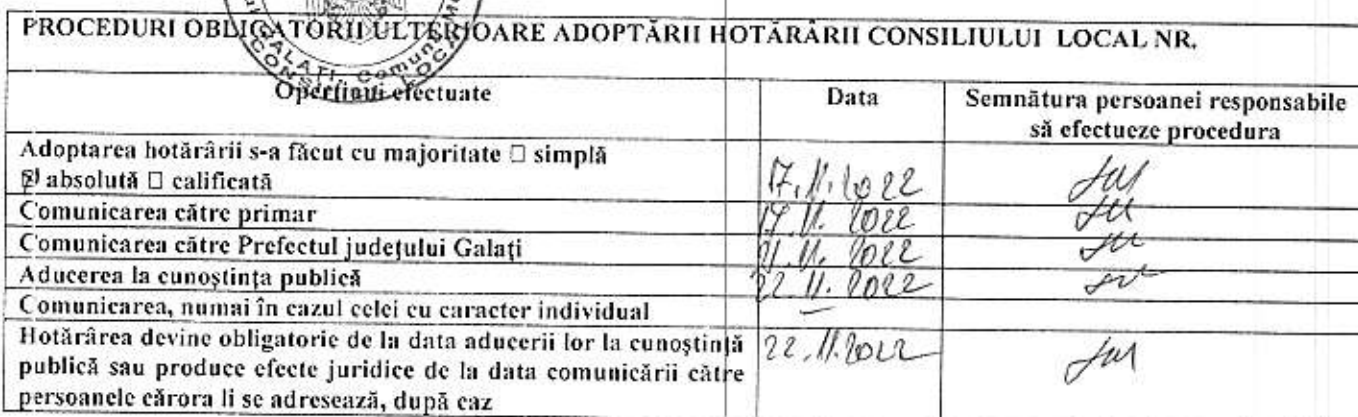 PROCEDURI OBLIGATORII ULTERIOARE ADOPTĂRII HOTĂRÂRII CONSILIULUI LOCAL NR.
GALAȚI, Comuna
CONSILIUL LOCAL
Operțiuni efectuate Data Semnătura persoanei responsabile
să efectueze procedura
Adoptarea hotărârii s-a făcut cu majoritate □ simplă
absolută □ calificată 17.11.2022
Comunicarea către primar 17.11.2022
Comunicarea către Prefectul județului Galați 21.11.2022
Aducerea la cunoștința publică 22.11.2022
Comunicarea, numai în cazul celei cu caracter individual —
Hotărârea devine obligatorie de la data aducerii lor la cunoștință 22.11.2022
publică sau produce efecte juridice de la data comunicării către
persoanele cărora li se adresează, după caz